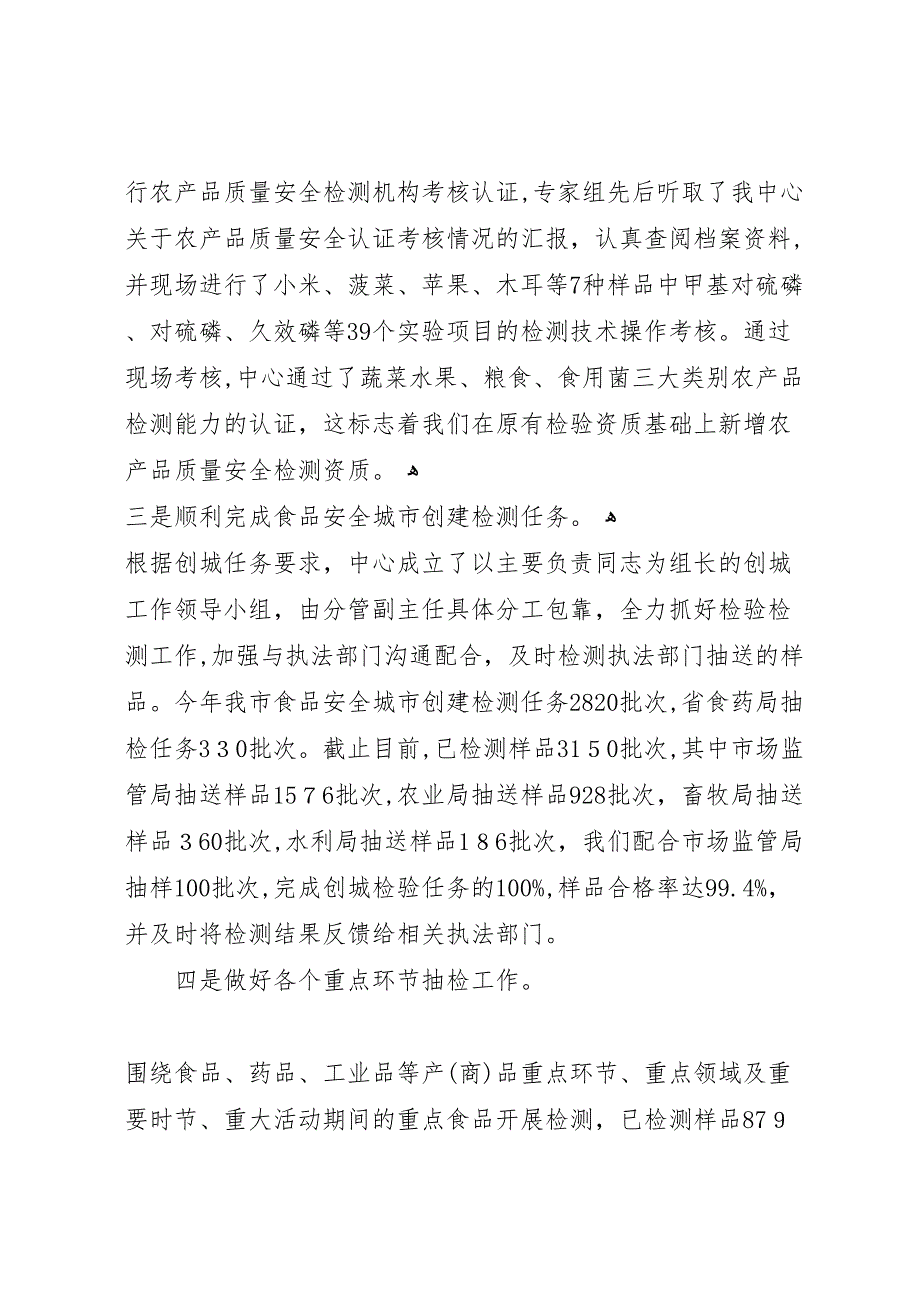 行农产品质量安全检测机构考核认证,专家组先后听取了我中心
关于农产品质量安全认证考核情况的汇报，认真查阅档案资料,
并现场进行了小米、菠菜、苹果、木耳等7种样品中甲基对硫磷
、对硫磷、久效磷等39个实验项目的检测技术操作考核。通过
现场考核,中心通过了蔬菜水果、粮食、食用菌三大类别农产品
检测能力的认证，这标志着我们在原有检验资质基础上新增农
产品质量安全检测资质。 ﻫ
三是顺利完成食品安全城市创建检测任务。 ﻫ
根据创城任务要求，中心成立了以主要负责同志为组长的创城
工作领导小组，由分管副主任具体分工包靠，全力抓好检验检
测工作,加强与执法部门沟通配合，及时检测执法部门抽送的样
品。今年我市食品安全城市创建检测任务2820批次,省食药局抽
检任务330批次。截止目前,已检测样品3150批次,其中市场监
管局抽送样品1576批次,农业局抽送样品928批次，畜牧局抽送
样品360批次,水利局抽送样品186批次，我们配合市场监管局
抽样100批次,完成创城检验任务的100%,样品合格率达99.4%，
并及时将检测结果反馈给相关执法部门。
四是做好各个重点环节抽检工作。
围绕食品、药品、工业品等产(商)品重点环节、重点领域及重
要时节、重大活动期间的重点食品开展检测，已检测样品879